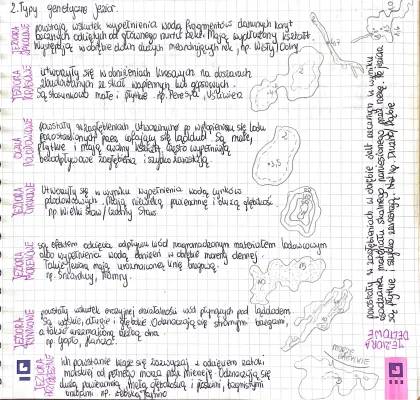 2. Typy genetyczne jezior.
JEZIORA
powstają wskutek wypełnienia wodą fragmentów dawnych koryt
rzecznych odciętych od głównego nurtu rzeki. Mają wydłużony kształt
występują w obrębie dolin dużych meandrujących rzek, np.
JEZIORA
KRASOWE
utworzyły się w obniżeniach krasowych na obszarach
zbudowanych ze skał wapiennych lub gipsowych.
Są stosunkowo małe i płytkie np.
OCZKA
POLODOWCOWE
powstały w zagłębieniach utworzonych po wytopieniu się lodu
pozostawionych przez cofający się lądolód. Są małe,
płytkie i mają owalny kształt, często wypełniają
bezodpływowe zagłębienia i szybko zarastają.
JEZIORA
CYRKOWE
Utworzyły się w wyniku wypełnienia wodą cyrków
polodowcowych. Mają niewielką powierzchnię i dużą głębokość
np. Wielki Staw/Czarny Staw
JEZIORA
MORENOWE
są efektem odcięcia odpływu wód nagromadzonym materiałem lodowcowym
albo wypełnienia wodą obniżeń w obrębie moreny dennej.
Takie jeziora mają urozmaiconą linię brzegową.
np. Śniardwy, Mamry
JEZIORA
RYNNOWE
powstały wskutek erozyjnej działalności wód płynących pod lądolodem.
Są wąskie, długie i głębokie. Odznaczają się stromymi brzegami,
a także urozmaiconą rzeźbą dna.
np. Gopło, Hańcza.
JEZIORA
PRZYBRZEŻNE
Ich powstanie wiąże się zazwyczaj z odcięciem zatoki
morskiej od pełnego morza przez mierzeję. Odznaczają się
dużą powierzchnią, małą głębokością i płaskimi, bagnistymi
brzegami np. Łebsko, Jamno
MORZE
BAŁTYCKIE
JEZIORA
DELTOWE
powstały w zagłębieniach w obrębie delt rzecznych w wyniku
osadzania materiału skalnego naniesionego przez rzekę. Te jeziora
są płytkie i szybko zarastają. Np. Druzno, Dąbie